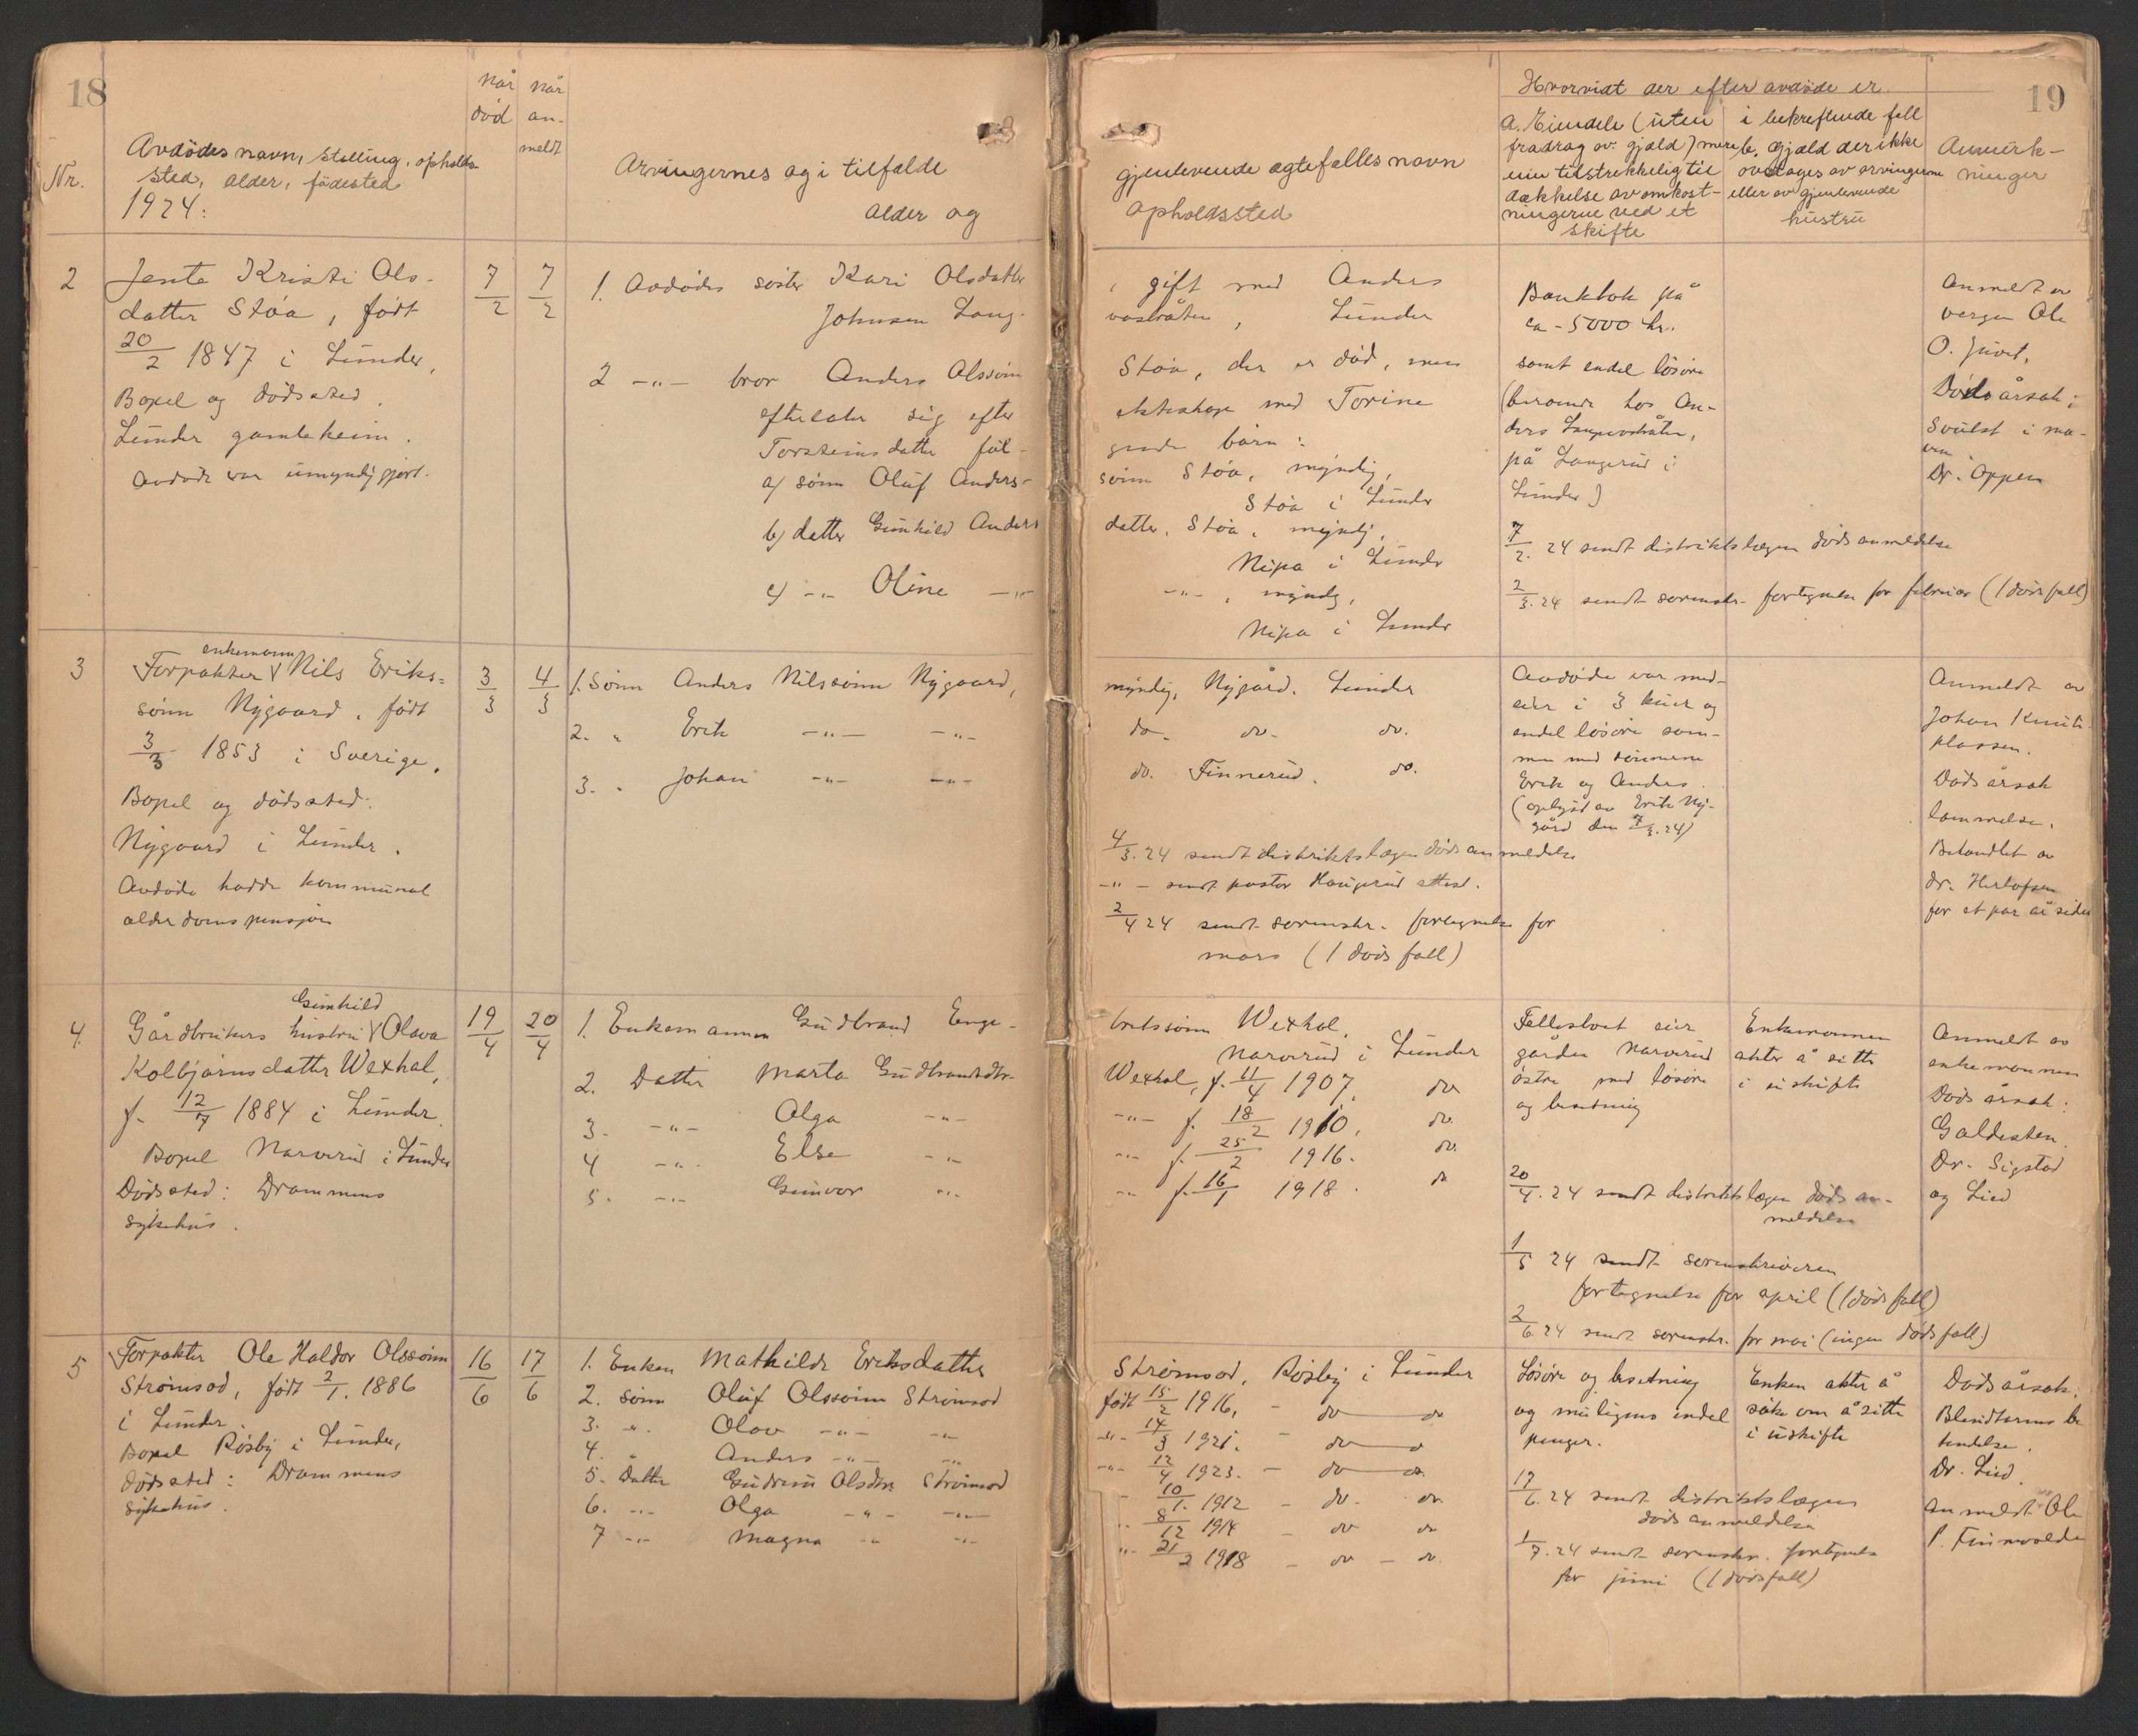 18
Nr.
Avdødes navn, stilling, opholds-
sted, alder, fødested
1924:
Når
død
Når
an-
meldt
Arvingernes og i tilfælde
alder og
2
Jente Kristi Ols-
datter Støa, født
20/2 1847 i Lunder,
Bopel og dødssted
Lunder gamleheim.
Avdøde var umyndiggjort.
7/2
7/2
1. Avdødes søster Kari Olsdatter
Johnsen Laug-
2 -"- bror Anders Olssønn
efterlater sig efter
Torsteinsdatter føl-
a) sønn Oluf Anders-
b) datter Gunhild Anders
c) -"- Oline -"-
3
enkemann
Forpakter Nils Eriks-
sønn Nygaard, født
3/3 1853 i Sverige.
Bopel og dødssted:
Nygaard i Lunder.
Avdøde hadde kommunal
alderdomspensjon
3/3
4/3
1. Sønn Anders Nilssønn Nygaard,
2. " Erik -"- -"-
3. " Johan -"- -"-
4.
Gunhild
Gårdbrukers hustru Olava
Kolbjørnsdatter Wexhal,
f. 12/7 1884 i Lunder.
Bopel Narverud i Lunder
Dødssted: Drammens
sykehus.
19/4
20/4
1. Enkemannen Gudbrand Enge-
2. Datter Marta Gudbrandsdtr.
3. -"- Olga -"-
4 -"- Else -"-
5. -"- Gunvor -"-
5
Forpakter Ole Haldor Olssønn
Strømsod, født 2/1. 1886
i Lunder.
Bopel Røsby i Lunder,
dødssted: Drammens
sykehus.
16/6
17/6
1. Enken Mathilde Eriksdatter
2. sønn Oluf Olssønn Strømsod
3. -"- Olav -"- -"-
4. " Anders -"- -"-
5. Datter Gudrun Olsdtr. Strømsod
6. -"- Olga -"- -"-
7 -"- Magna -"- -"-
19
gjenlevende ægtefælles navn
opholdssted
Hvorvidt der efter avdøde er
a. Eiendele (uten
fradrag av gjæld) mere
enn tilstrekkelig til
dækkelse av omkost-
ningerne ved et
skifte
i bekreftende fall
b. Gjæld der ikke
overtages av arvingerne
eller av gjenlevende
hustru
Anmerk-
ninger
, gift med Anders
, Lunder
Støa, der er død, men
ekteskap med Torine
gende børn:
sønn Støa, myndig,
Støa i Lunder
datter, Støa, myndig,
Nipa i Lunder
-"-, myndig,
Nipa i Lunder
Bankbok på
ca - 5000 kr.
samt endel løsøre
(beroende hos An-
ders
på Laugerud i
Lunder)
7/2. 24 sendt distriktslægen dødsanmeldelse
2/3. 24 sendt sorenskr. fortegnelse for februar (1 dødsfall)
Anmeldt av
vergen Ole
O. Juvet.
Dødsårsak:
Svulst i ma-
ven
Dr. Oppen
myndig, Nygård. Lunder
do. do. do.
do. Finnerud. do.
4/3. 24 sendt distriktslægen dødsanmeldelse
-"- sendt pastor Haugerud attest.
2/4 24 sendt sorenskr. fortegnelse for
mars (1 dødsfall)
Avdøde var med-
eier i 3 kuer og
endel løsøre sam-
men med sønnene
Erik og Anders.
(oplyst av Erik Ny-
gård den 7/3. 24)
Anmeldt av
Johan Knuts-
plassen.
Dødsårsak
lammelse.
Behandlet av
dr. Herlofsen
for et par år siden
bretssønn Wexhal,
Narverud i Lunder
Wexhal, f. 11/4 1907, do
-"- f. 18/2 1910, do.
-"- f. 25/2 1916. do.
-"- f. 16/1 1918. do
Fellesboet eier
gården Narverud
østre med løsøre
og besetning
Enkemannen
akter å sitte
i uskifte
20/4. 24 sendt distriktslægen dødsan-
meldelse
1/5 24 sendt sorenskriveren
fortegnelse for april (1 dødsfall)
2/6. 24 sendt sorenskr. for mai (ingen dødsfall)
Anmeldt av
enkemannen
Dødsårsak:
Galdesten.
Dr. Sigstad
og Lied
Strømsod, Røsby i Lunder
født 15/2 1916, - do do
-"- 14/3 1921. - do do
-"- 12/4 1923. - do do.
10/1. 1912 - do. do.
" 8/12 1914 - do do
" 21/2 1918 - do - do.
Løsøre og besetning
og muligens endel
penger.
Enken akter å
søke om å sitte
i uskifte
17/6. 24 sendt distriktslægen
dødsanmeldelse
1/7. 24 sendt sorenskr. fortegnelse
for juni (1 dødsfall)
Dødsårsak:
Blindtarmsbe
tendelse.
Dr. Lied.
Anmeldt Ole
P. Finnvolden